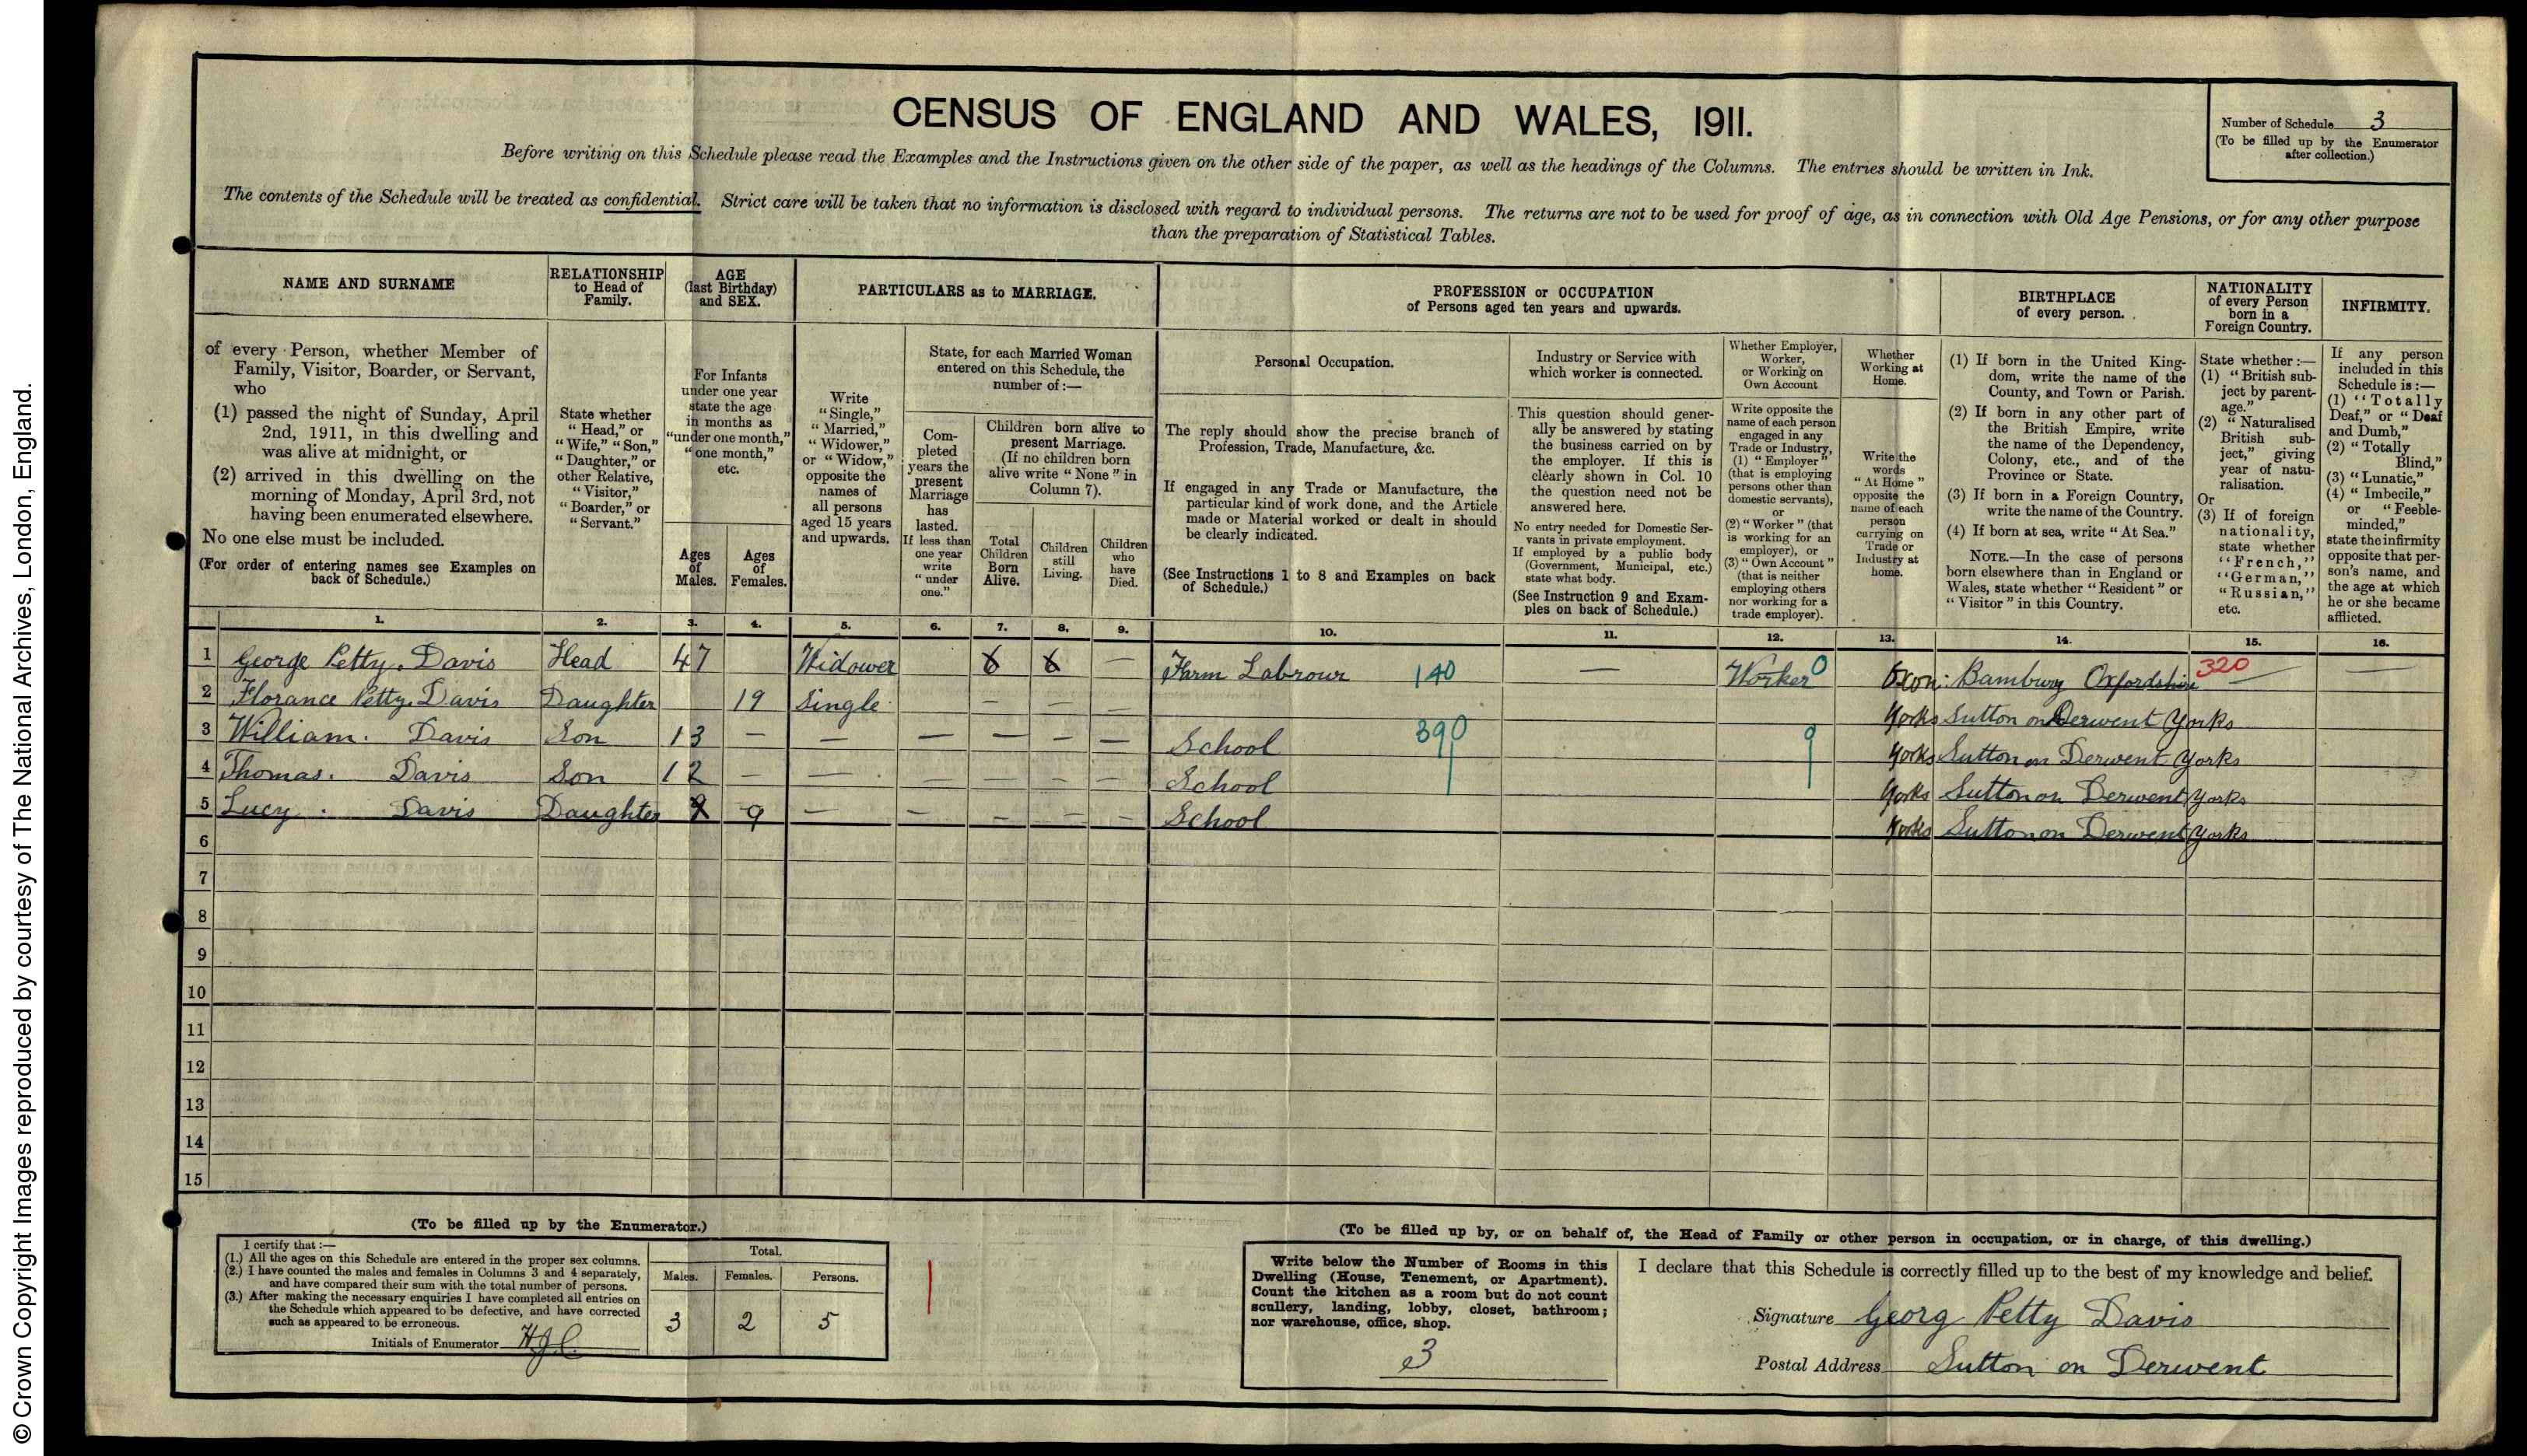 © Crown Copyright Images reproduced by courtesy of The National Archives, London, England.
CENSUS OF ENGLAND AND WALES, 1911.
Number of Schedule 3
(To be filled up by the Enumerator
after collection.)
Before writing on this Schedule please read the Examples and the Instructions given on the other side of the paper, as well as the headings of the Columns. The entries should be written in Ink.
The contents of the Schedule will be treated as confidential. Strict care will be taken that no information is disclosed with regard to individual persons. The returns are not to be used for proof of age, as in connection with Old Age Pensions, or for any other purpose
than the preparation of Statistical Tables.
NAME AND SURNAME
of every Person, whether Member of
Family, Visitor, Boarder, or Servant,
who
(1) passed the night of Sunday, April
2nd, 1911, in this dwelling and
was alive at midnight, or
(2) arrived in this dwelling on the
morning of Monday, April 3rd, not
having been enumerated elsewhere.
No one else must be included.
(For order of entering names see Examples on
back of Schedule.)
RELATIONSHIP
to Head of
Family.
State whether
"Head," or
"Wife," "Son,"
"Daughter," or
other Relative,
"Visitor,"
"Boarder," or
"Servant."
AGE
(last Birthday)
and SEX.
For Infants
under one year
state the age
in months as
"under one month,"
"one month,"
etc.
Ages
of
Males.
Ages
of
Females.
PARTICULARS as to MARRIAGE.
Write
"Single,"
"Married,"
"Widower,"
or "Widow,"
opposite the
names of
all persons
aged 15 years
and upwards.
State, for each Married Woman
entered on this Schedule, the
number of :—
Com-
pleted
years the
present
Marriage
has
lasted.
If less than
one year
write
"under
one."
Children born alive to
present Marriage.
(If no children born
alive write "None" in
Column 7).
Total
Children
Born
Alive.
Children
still
Living.
Children
who
have
Died.
PROFESSION or OCCUPATION
of Persons aged ten years and upwards.
Personal Occupation.
The reply should show the precise branch of
Profession, Trade, Manufacture, &c.
If engaged in any Trade or Manufacture, the
particular kind of work done, and the Article
made or Material worked or dealt in should
be clearly indicated.
(See Instructions 1 to 8 and Examples on back
of Schedule.)
Industry or Service with
which worker is connected.
This question should gener-
ally be answered by stating
the business carried on by
the employer. If this is
clearly shown in Col. 10
the question need not be
answered here.
No entry needed for Domestic Ser-
vants in private employment.
If employed by a public body
(Government, Municipal, etc.)
state what body.
(See Instruction 9 and Exam-
ples on back of Schedule.)
Whether Employer,
Worker,
or Working on
Own Account
Write opposite the
name of each person
engaged in any
Trade or Industry,
(1) "Employer"
(that is employing
persons other than
domestic servants),
or
(2) "Worker" (that
is working for an
employer), or
(3) "Own Account"
(that is neither
employing others
nor working for a
trade employer).
Whether
Working at
Home.
Write the
words
"At Home"
opposite the
name of each
person
carrying on
Trade or
Industry at
home.
BIRTHPLACE
of every person.
(1) If born in the United King-
dom, write the name of the
County, and Town or Parish.
(2) If born in any other part of
the British Empire, write
the name of the Dependency,
Colony, etc., and of the
Province or State.
(3) If born in a Foreign Country,
write the name of the Country.
(4) If born at sea, write "At Sea."
NOTE.—In the case of persons
born elsewhere than in England or
Wales, state whether "Resident" or
"Visitor" in this Country.
NATIONALITY
of every Person
born in a
Foreign Country.
State whether :—
(1) "British sub-
ject by parent-
age."
(2) "Naturalised
British sub-
ject," giving
year of natu-
ralisation.
Or
(3) If of foreign
nationality,
state whether
"French,"
"German,"
"Russian,"
etc.
INFIRMITY.
If any person
included in this
Schedule is :—
(1) "Totally
Deaf," or "Deaf
and Dumb,"
(2) "Totally
Blind,"
(3) "Lunatic,"
(4) "Imbecile,"
or "Feeble-
minded,"
state the infirmity
opposite that per-
son's name, and
the age at which
he or she became
afflicted.
1. 2. 3. 4. 5. 6. 7. 8. 9. 10. 11. 12. 13. 14. 15. 16.
1 George Petty. Davis Head 47 Widower 6 6 — Farm Labrour 140 — Worker 0 Oxon: Bambury Oxfordshire 320 —
2 Florance Petty. Davis Daughter 19 Single — — — Yorks Sutton on Derwent Yorks
3 William. Davis Son 13 — — — — — — School 390 9 Yorks Sutton on Derwent Yorks
4 Thomas. Davis Son 12 — — — — — — School Yorks Sutton on Derwent Yorks
5 Lucy. Davis Daughter 9 9 — — — — — School Yorks Sutton on Derwent Yorks
6
7
8
9
10
11
12
13
14
15
(To be filled up by the Enumerator.)
I certify that :—
(1.) All the ages on this Schedule are entered in the proper sex columns.
(2.) I have counted the males and females in Columns 3 and 4 separately,
and have compared their sum with the total number of persons.
(3.) After making the necessary enquiries I have completed all entries on
the Schedule which appeared to be defective, and have corrected
such as appeared to be erroneous.
Initials of Enumerator HJC
Total.
Males. Females. Persons.
3 2 5
(To be filled up by, or on behalf of, the Head of Family or other person in occupation, or in charge, of this dwelling.)
Write below the Number of Rooms in this
Dwelling (House, Tenement, or Apartment).
Count the kitchen as a room but do not count
scullery, landing, lobby, closet, bathroom;
nor warehouse, office, shop.
3
I declare that this Schedule is correctly filled up to the best of my knowledge and belief.
Signature Georg Petty Davis
Postal Address Sutton on Derwent